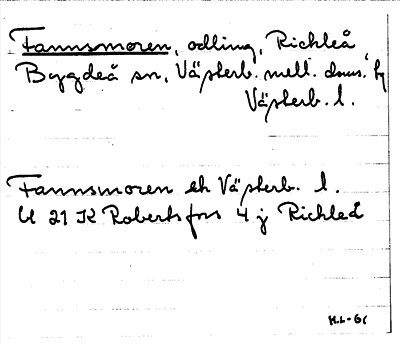 Fannsmoren, odling, Richleå,
Bygdeå sn, Västerb. mell. doms. hg
Västerb. l.
Fannsmoren ek Västerb. l.
bl 21 K Robertsfors 4 j Richleå
H.L-61